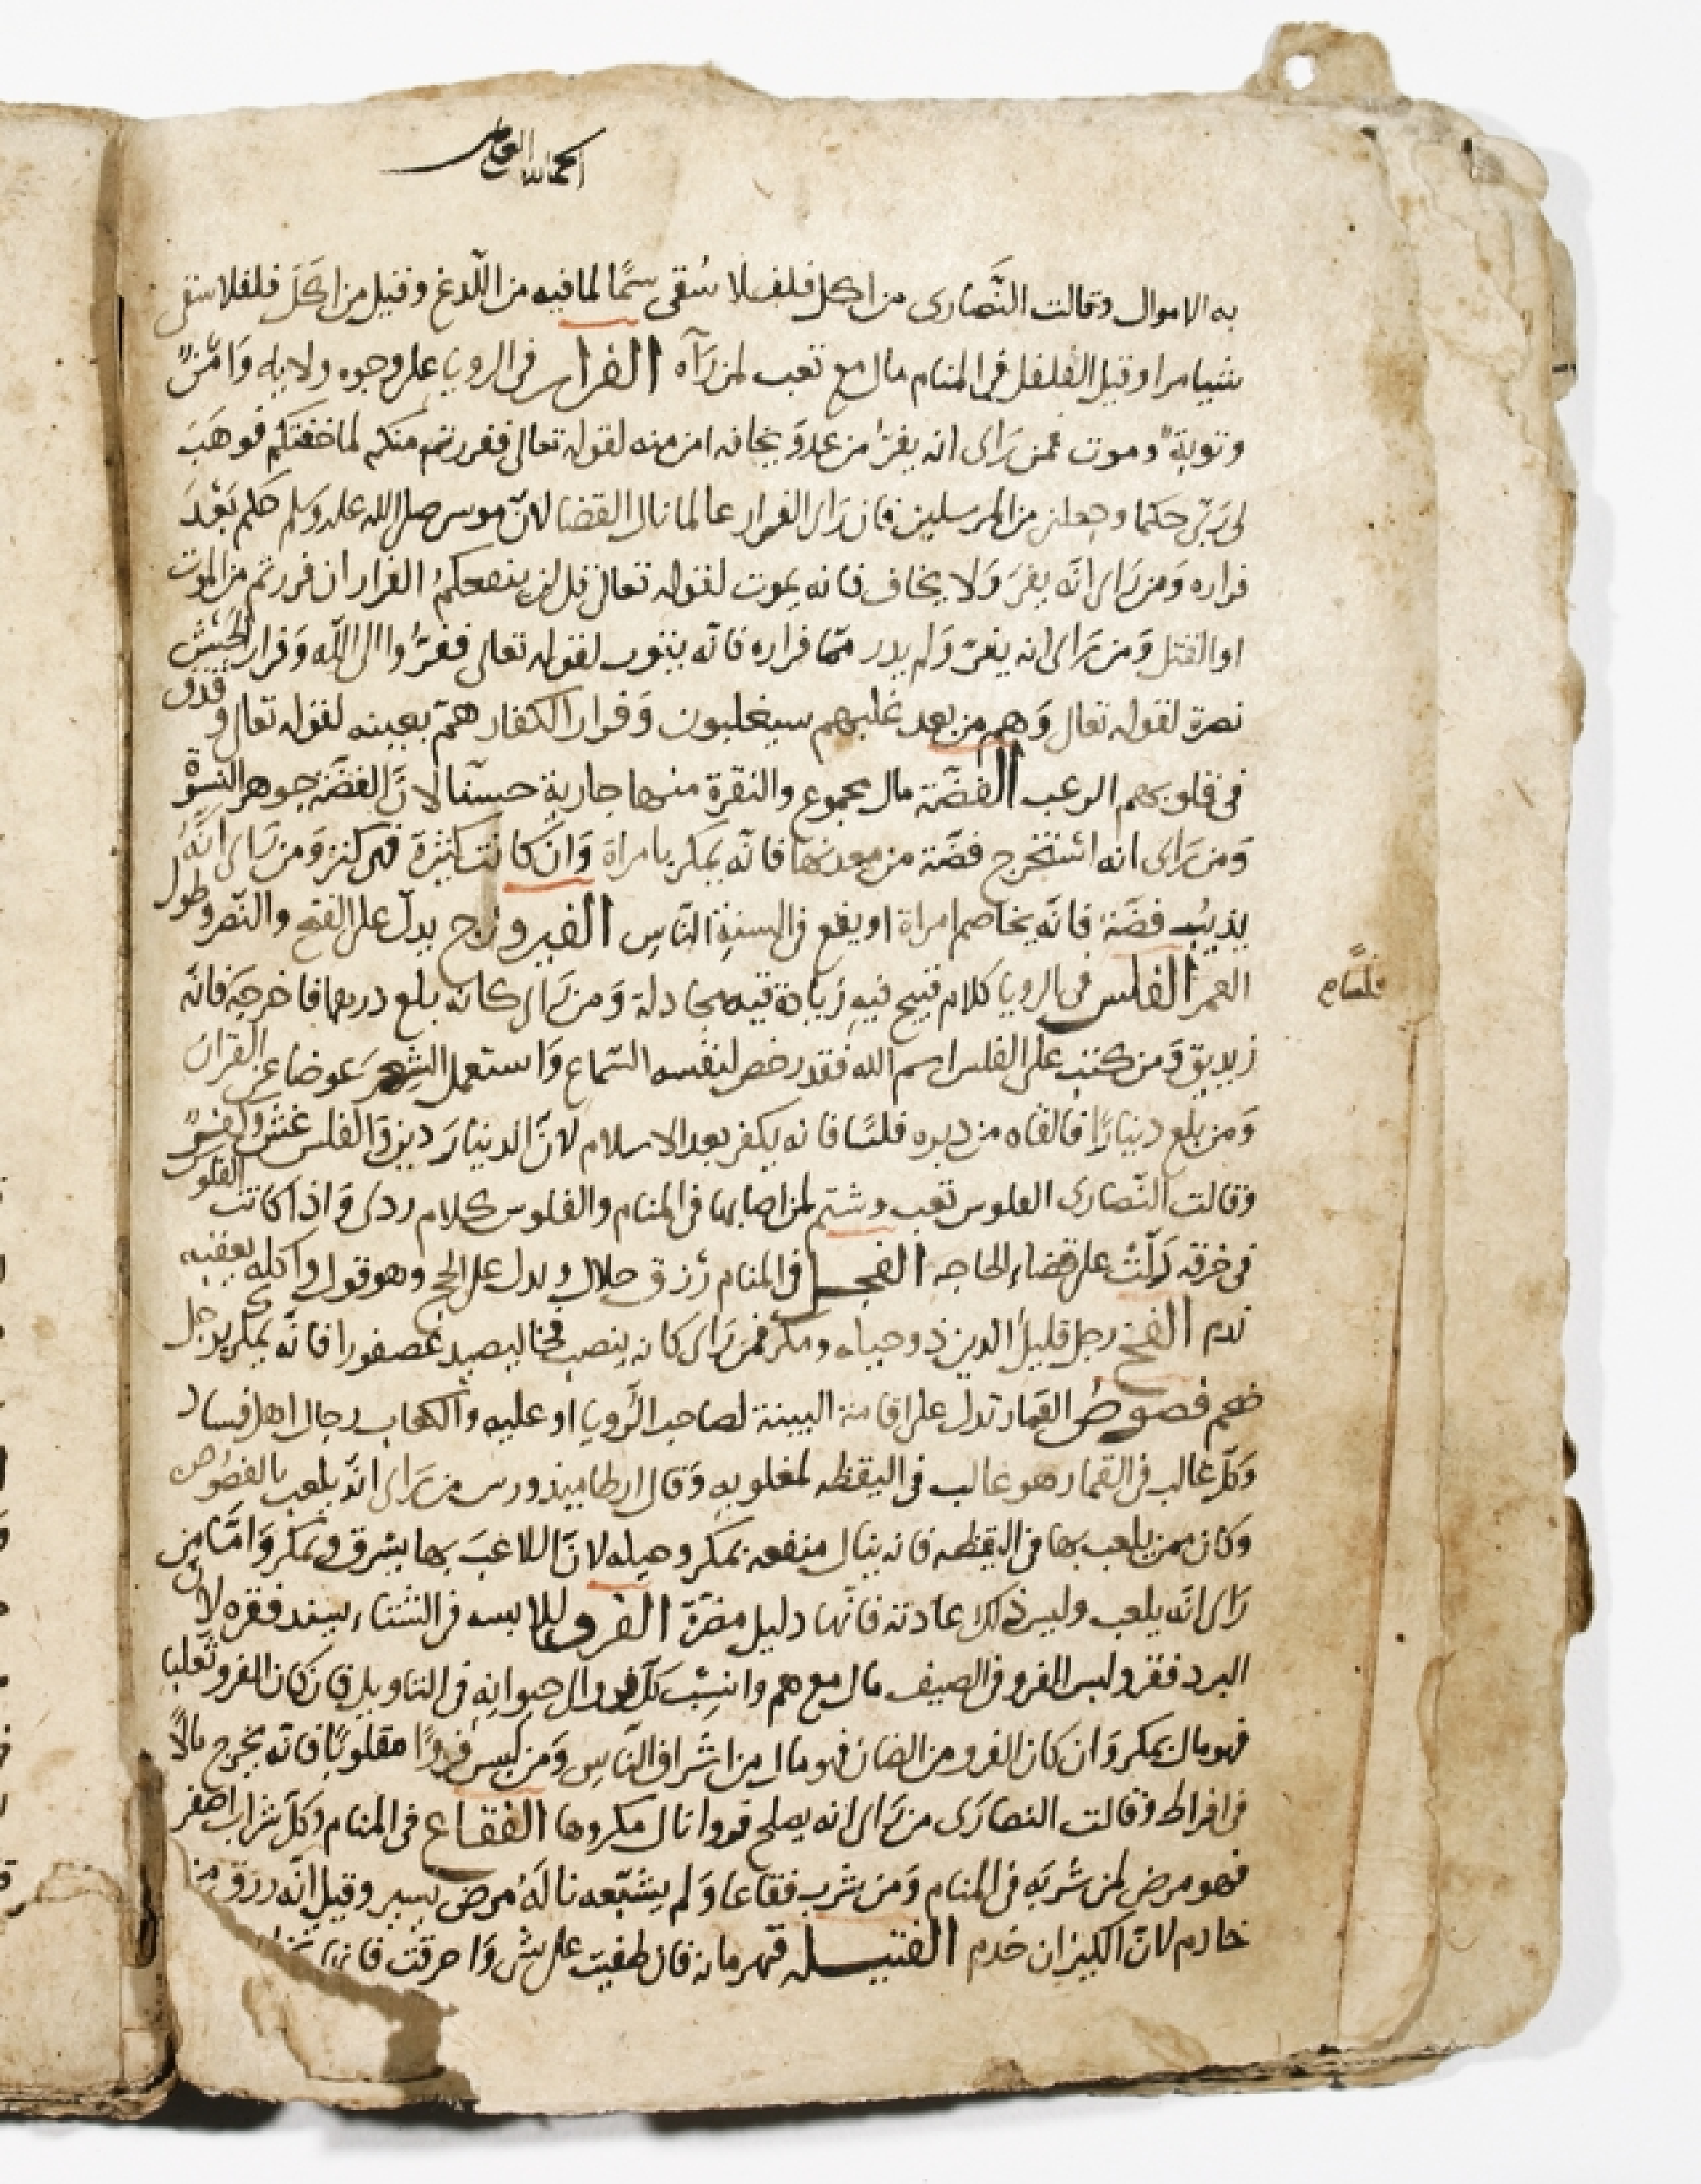 به الاموال وقالت النَّصارى من اكل فلفلا سُقى سمًّا لما فيه من اللّدغ وقيل من اكَلَ فلفلا سقى
شيا مرا وقيل الفلفل فى المنام مال مع تعب لمن رَآه الفرار فى الرويا على وجوه ولايه وَامْنٌ
وتوبةٌ وموت فمن رَاى انه يفرّ من عدوّ يخافه امن منه لقوله تعالى ففررتم منكم لما خفتكم فوهَبَ
لى رَبّى حكما وجعلنى من المرسلين فان رَاى الفرار عالما نال القضا لانّ موسى صلى الله عليه وسلم حكم بَعْدَ
فراره وَمن رَاى انّه يفرّ وَلا يخاف فانه يموت لقوله تعالى قل لن ينفعكمُ الفرار ان فررتم من الموت
او القتل وَمن رَاى انه يفرّ وَلم يدر ممّا فراره فانّه يتوب لقوله تعالى ففرّوا الى اللّه وَفرار الجَيْشِ
نصرة لقوله تعالى وَهم من بعد غلبهم سيغلبون وَفرار الكفار همّ بعينه لقوله تعالى وقذف
فى قلوبهم الرعب الفضّة مال مجموع والنقرة منها جارية حسنا لانّ الفضّة جوهر النِسوْة
وَمن رَاى انه استخرج فضّة من معدنها فانّه يمكر بامراة وَان كانت كثيرة فهى كنز وَمن رَاى انّهُ
يذيبُ فضّة فانّه يخاصم امراة او يقع فى السنةِ النّاسِ الفيروزج يدلّ على الفتح والنّصر وطول
العمر الفلس فى الرويا كلام قبيح فيهِ زيادة فيه مجادلة وَمن رَاى كانه بلع درهما فاخرجَه فانّه
زنديق وَمن كتب على الفلس اسم الله فقد رخص لنفسه السّماع وَاستعمل الشِعرَ عوضا عن القرانَ
وَمن بلع دينارًا فالقاه من دبره فلسًا فانه يكفر بعد الاسلام لانّ الدينارَ دين وَالفلس غشٌّ
فلسًا م
وقالت النّصارى الفلوس تعب وشتم لمن اصابها فى المنام والفلوس كلام ردى وَاذا كانت الفلوس
فى خرقه دَلّتْ على قضاءِ الحاجه الفجل فى المنام رزق حلال ويدل على الحج وهو قول واكله يعقبه
ندم الفخ رجل قليل الدين ذو حياه ومكر فمن رَاى كانه ينصب فخا ليصيد عصفورا فانّه يمكر برجل
ضخم فصوصُ القمار تدل على اقامة البينة لصاحب الرّويا او عليه والكعاب رجال اهل فساد
وَكلّ غالب فى القمار هو غالب فى اليقظه لمغلوبهِ وَقال ارطاميدورس من رَاى انّه يلعب بالفصُوص
وكان ممن يلعب بها فى اليقظه فانه ينال منفعه بمكر وحيله لانّ اللاعبَ بها يسْرق ويمكر وَامّا من
رَاى انّه يلعب وليس ذلك عادته فانّها دليل مضرّة الفرو للابسه فى الشتاء يسند فقره لانّ
البرد فقر ولبس الفرو فى الصيف مال مع هم وانسِبْ كلّ فرو الى حيوانِه فى التاويل فان كان الفرو ثعلبا
فهو مال بمكر وَان كان الفرو من الضان فهو مال من اشراف النّاسِ وَمن لبسَ فروًا مقلوبًا فانّه يخرج مالًا
فى افراط وَقالت النصارَى من رَاى انه يصلح فروا نال مكروها الفقاع فى المنام وَكلّ شراب اصفر
فهو مرض لمن شربَه فى المنام وَمن شرب فقاعا وَلم يشبعه نالهُ مرض يسير وقيل انّه رزق من
خادم لانّ الكيزان خدم الفتيله قهرمانه فان طفيت على شى وَاحرقت فانها